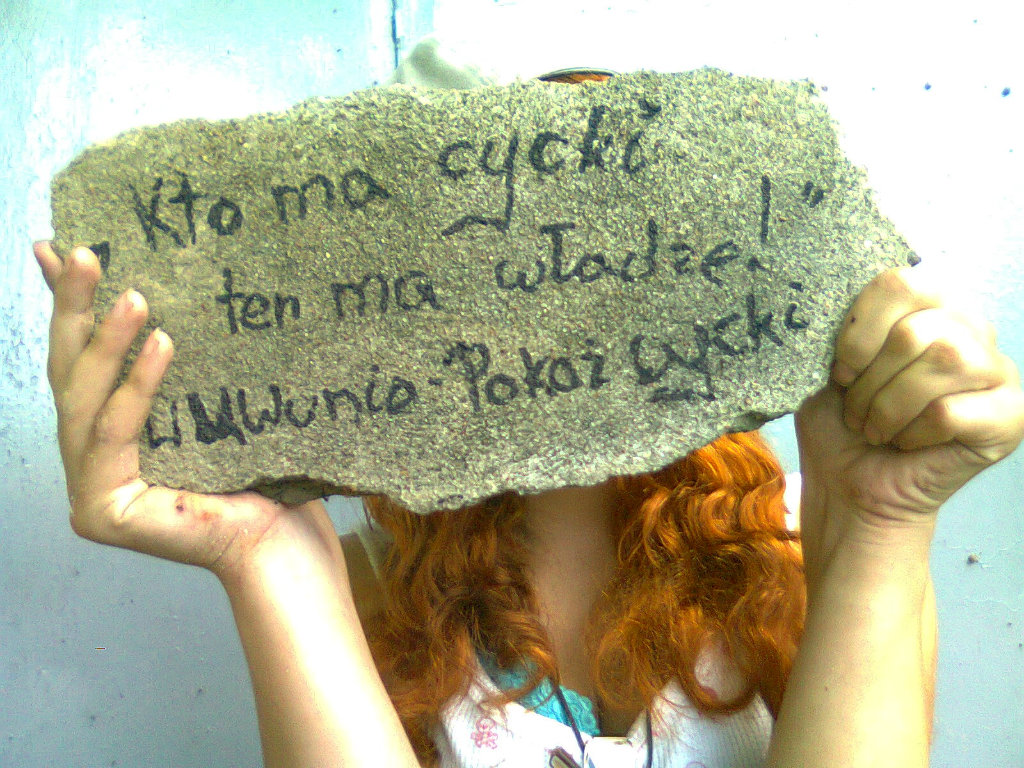 „Kto ma cycki
ten ma władzę!”
WMWunio - Pokaż cycki